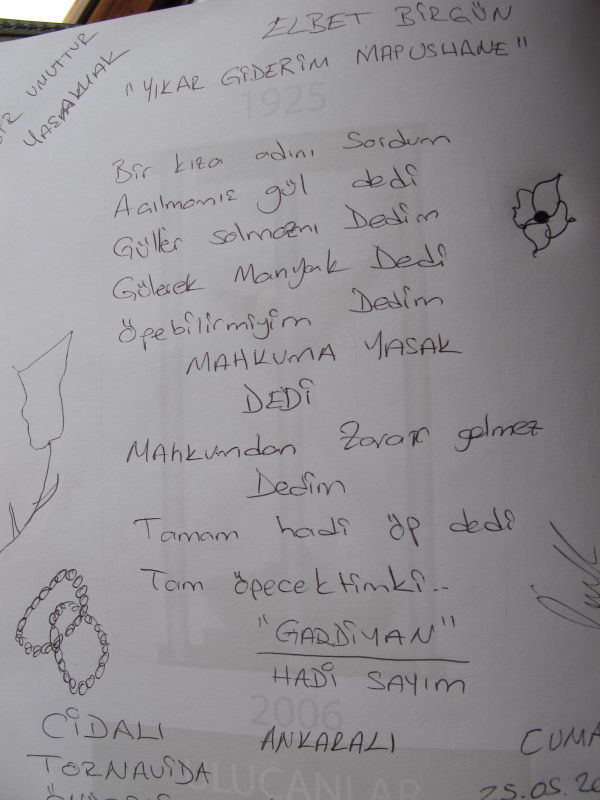 ELBET BİRGÜN
"YIKAR GİDERİM MAPUSHANE"
BİZ UMUTTUR
YAŞAMAK
1925
Bir kıza adını sordum
Açılmamış gül dedi
Güller solmazmı Dedim
Gülerek Manyak Dedi
öpebilirmiyim Dedim
MAHKUMA YASAK
DEDİ
Mahkumdan Zarar gelmez
Dedim
Tamam hadi öp dedi
Tam öpecektimki..
"GARDİYAN"
HADİ SAYIM
2006
CİDALI ANKARALI CUMA
TORNAVİDA
ULUCANLAR
25.05.20